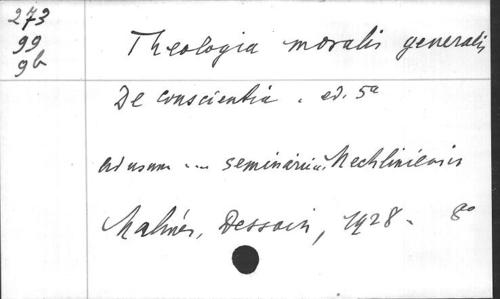 273
99
9b
Theologia moralis generalis
De conscientia . ed. 5a
ad usum ... seminarii Mechliniensis
Malines, Dessain, 1928. 8°